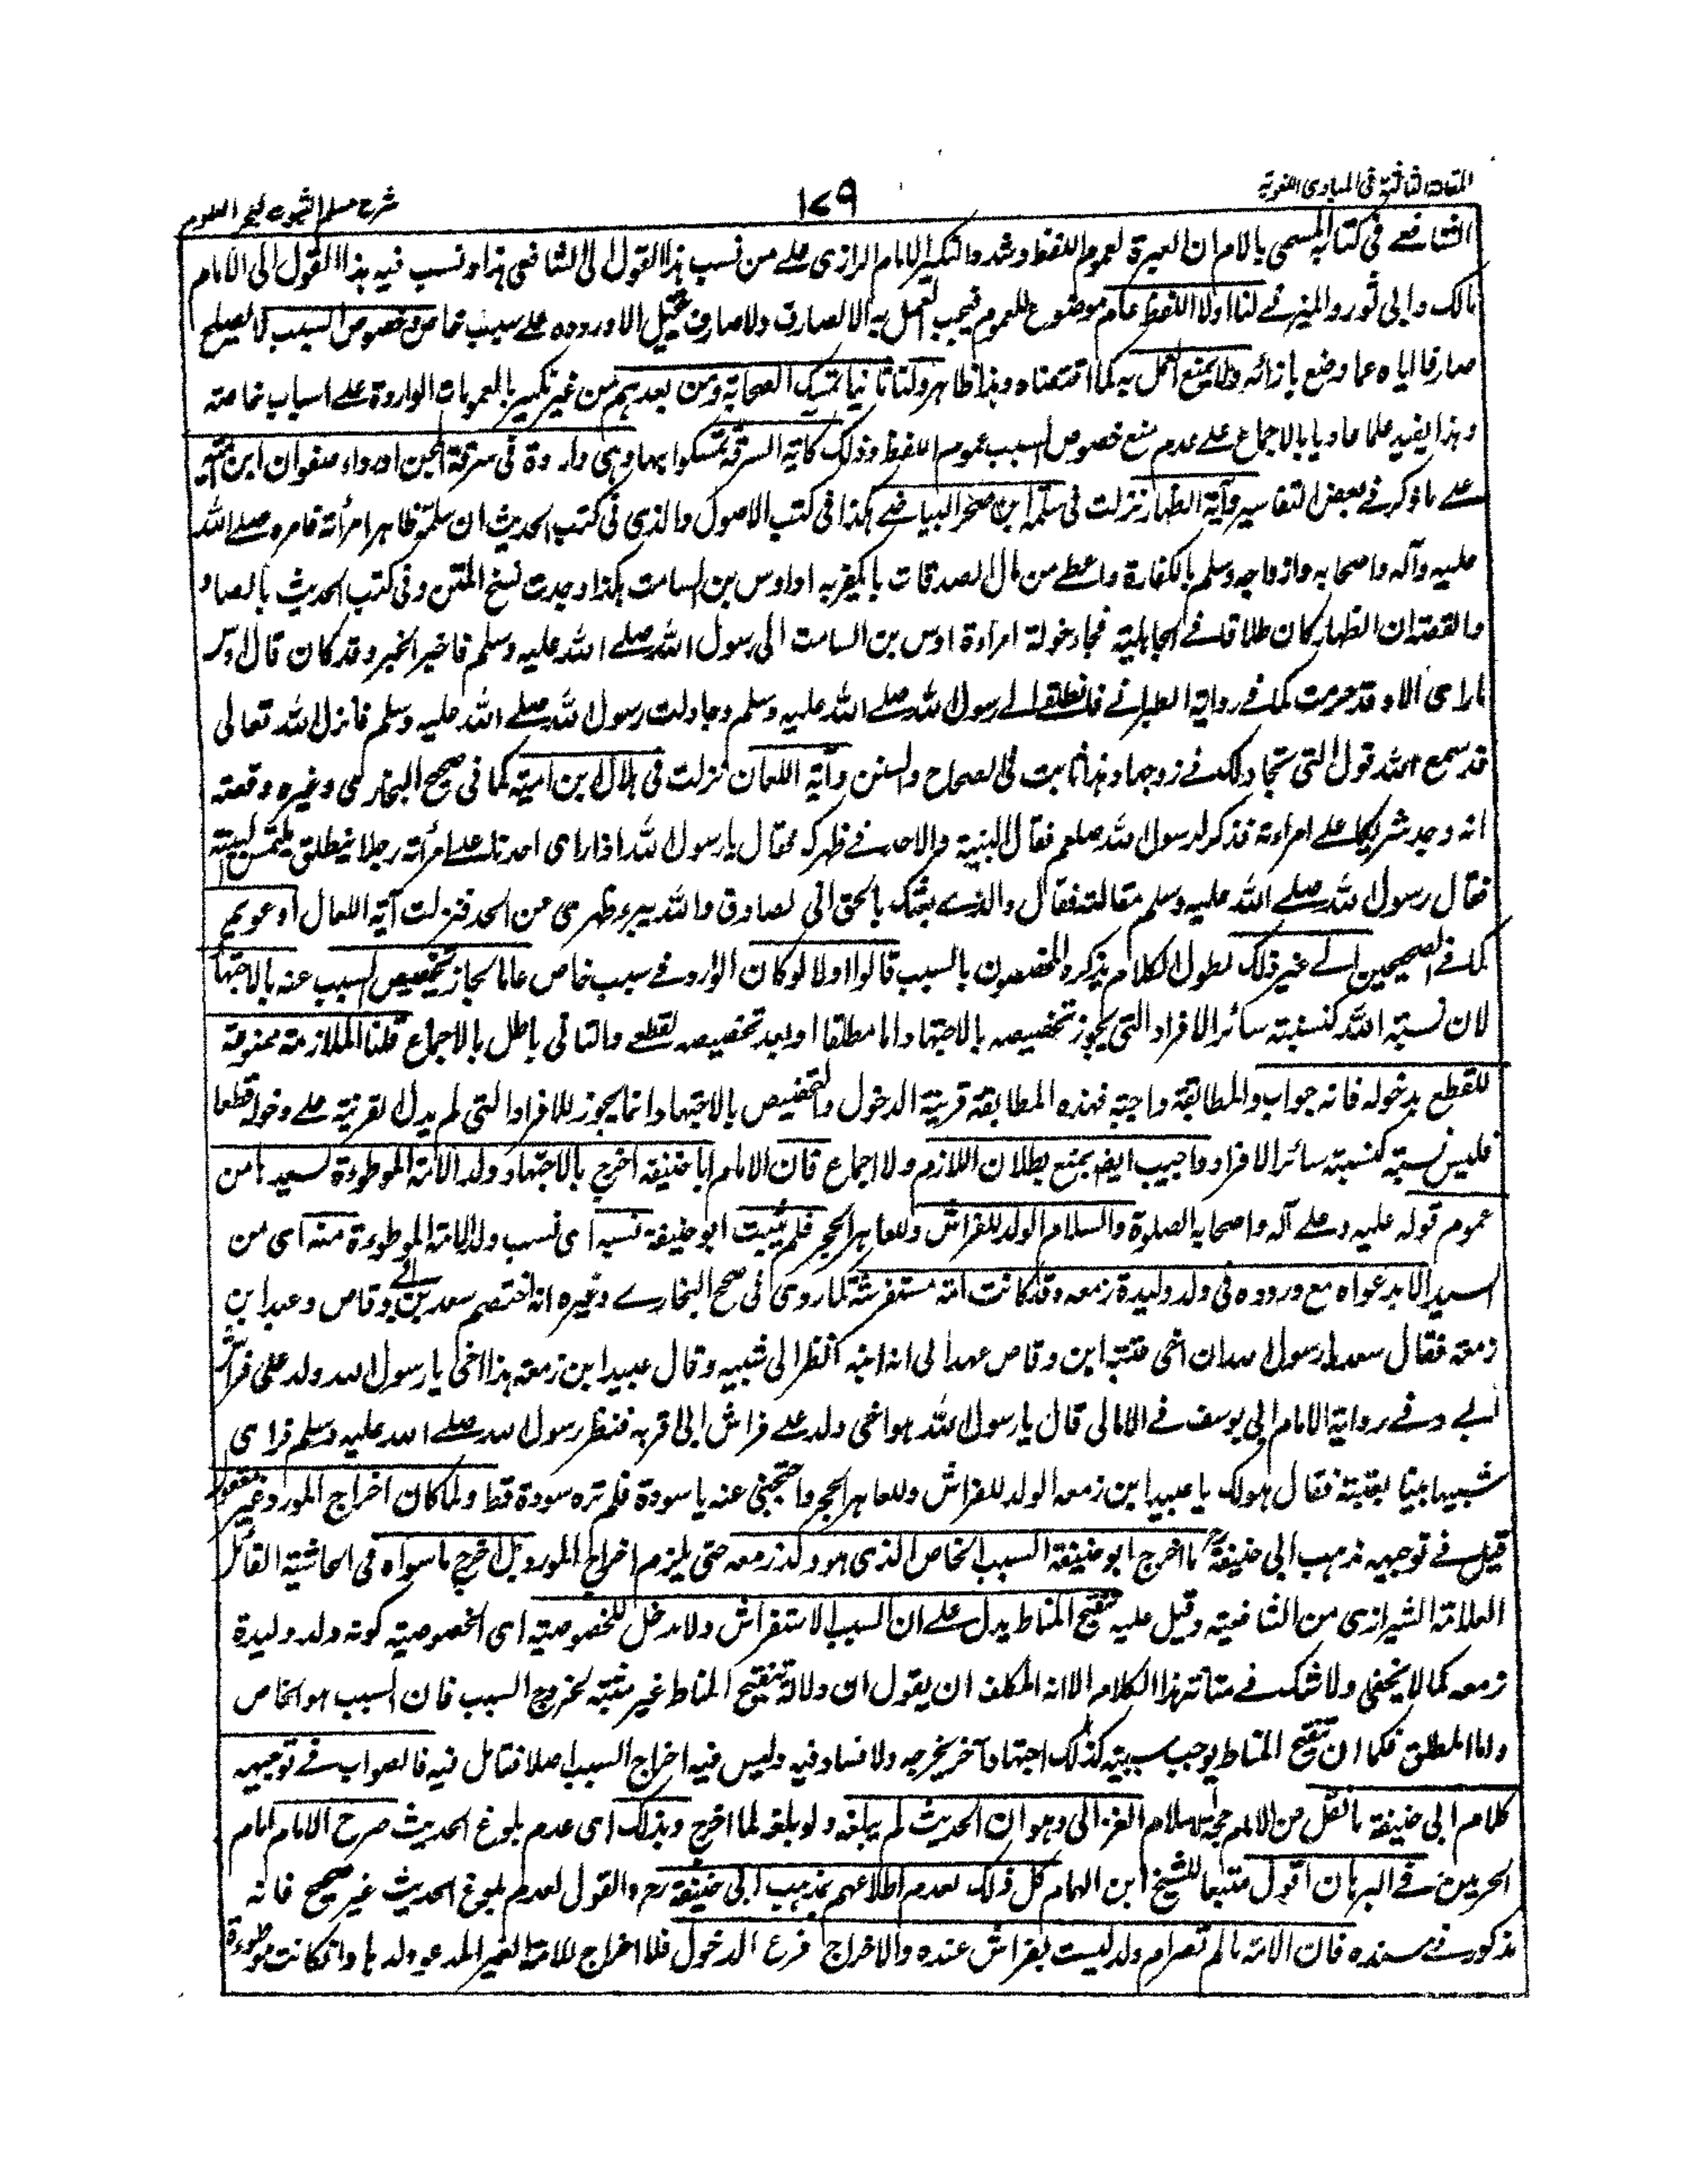 المقالة الثالثة في المبادى اللغوية
١٧٩
شرح مسلم الثبوت لبحر العلوم
الشافعے فى كتابه المسمى بالام ان العبرة لعموم اللفظ وشدد النكير الامام الرازى علے من نسب هذا القول الى الشافعى هذا ونسب فيه هذا القول الى الامام
مالك وابى ثور والمزنے لنا اولا اللفظ عام موضوع للعموم فيجب العمل به الا لصارف ولا صارف يخيل الا وروده علے سبب خاص وخصوص السبب لا يصلح
صارفا اياه عما وضع بازائه ولا يمنع العمل به كما اقتضاه وهذا ظاهر ولنا ثانيا تمسك الصحابة ومن بعدهم من غير نكير بالعمومات الواردة علے اسباب خاصة
وهذا يفيد علما عاديا بالاجماع علے عدم منع خصوص السبب عموم اللفظ وذلك كآية السرقة تمسكوا بها وهى واردة فى سرقة المجن او رداء صفوان ابن امية
علے ما ذكر فے بعض التفاسير وآية الظهار نزلت فى سلمة ابن صخر البياضے هكذا فى كتب الاصول والذى فى كتب الحديث ان سلمة ظاهر امرأته فامره صلے الله
عليه وآله واصحابه وازواجه وسلم بالكفارة واعطے من مال الصدقات ما يكفر به او اوس بن السامت هكذا وجدت نسخ المتن وفى كتب الحديث بالصاد
والقصة ان الظهار كان طلاقا فے الجاهلية فجاء خولة امراءة اوس بن السامت الى رسول الله صلے الله عليه وسلم فاخبر الخبر وقد كان قال اوس
ما ارى الا وقد حرمت كما فے رواية الطبرانے فانطلقے الے رسول الله صلے الله عليه وسلم وجادلت رسول الله صلے الله عليه وسلم فانزل الله تعالى
قد سمع الله قول التى تجادلك فے زوجها وهذا ثابت فى الصحاح والسنن وآية اللعان نزلت فى هلال ابن امية كما فى صحيح البخارى وغيره وقصته
انه وجد شريكا علے امراءته فذكر لرسول الله صلعم فقال البينة والا حد فے ظهرك فقال يا رسول الله اذا راى احدنا علے امرأته رجلا ينطلق يلتمس البينة
فقال رسول الله صلے الله عليه وسلم مقالته فقال والذے بعثك بالحق انى لصادق والله يبرء ظهرى من الحد فنزلت آية اللعان او عويمر
كما فے الصحيحين الے غير ذلك يطول الكلام بذكره المخصصون بالسبب قالوا اولا لو كان الوارد فے سبب خاص عاما لجاز تخصيص السبب عنه بالاجتهاد
لان نسبته اليه كنسبة سائر الافراد التى يجوز تخصيصه بالاجتهاد اما مطلقا او بعد تخصيصه بقطعے والتالى باطل بالاجماع قلنا الملازمة ممنوعة
للقطع بدخوله فانه جواب والمطابقة واجبة فهذه المطابقة قرينة الدخول والتخصيص بالاجتهاد انما يجوز للافراد التى لم يدل القرينة علے دخوله قطعا
فليس نسبته كنسبة سائر الافراد واجيب ايضا بمنع بطلان اللازم ولا اجماع فان الامام ابا حنيفة اخرج بالاجتهاد ولد الامة الموطوءة لسيدها من
عموم قوله عليه وعلے آله واصحابه الصلوة والسلام الولد للفراش وللعاهر الحجر فلم يثبت ابو حنيفة نسبه اى نسب ولد الامة الموطوءة منه اى من
السيد الا بدعواه مع وروده فى ولد وليدة زمعه وقد كانت امة مستفرشة لما روى فى صحيح البخارے وغيره انه اختصم سعد بن ابے وقاص وعبد ابن
زمعه فقال سعد يا رسول الله ان اخى عتبة ابن وقاص عهد الى انه ابنه انظر الى شبهه وقال عبد ابن زمعة هذا اخى يا رسول الله ولد على فراش
ابے وفے رواية الامام ابى يوسف فے الامالى قال يا رسول الله هو اخى ولد علے فراش ابى اقر به فنظر رسول الله صلے الله عليه وسلم فراى
شبها بينا بعتبة فقال هو لك يا عبد ابن زمعه الولد للفراش وللعاهر الحجر واحتجبى عنه يا سودة فلم تره سودة قط ولما كان اخراج المورد غير معقول
قيل فے توجيه مذهب ابى حنيفة ما اخرج ابو حنيفة السبب الخاص الذى هو ولد زمعه حتى يلزم اخراج المورد بل اخرج ما سواه فى الحاشية القائل
العلامة الشيرازى من الشافعية وقيل عليه تنقيح المناط يدل علے ان السبب الاستفراش ولا دخل للخصوصية اى الخصوصية كونه ولد وليدة
زمعه كما لا يخفى ولا شك فے متانة هذا الكلام الا انه المكلف ان يقول ان دلالة تنقيح المناط غير مثبتة لخروج السبب فان السبب هو الخاص
واما المطلق فكما ان تنقيح المناط يوجب سببيته كذلك اجتهاد آخر يخرجه ولا فساد فيه وليس فيه اخراج السبب اصلا فتامل فيه فالصواب فے توجيه
كلام ابى حنيفة ما نقل من الامام حجة الاسلام الغزالى وهو ان الحديث لم يبلغه ولو بلغه لما اخرج وبذلك اى عدم بلوغ الحديث صرح الامام امام
الحرمين فے البرهان اقول متبعا للشيخ ابن الهمام كل ذلك لعدم اطلاعهم بمذهب ابى حنيفة رحمه والقول لعدم بلوغ الحديث غير صحيح فانه
مذكور فے مسنده فان الامة ما لم تصر ام ولد ليست بفراش عنده والاخراج فرع الدخول فلا اخراج للامة الغير المدعو ولدها وان كانت موطوءة